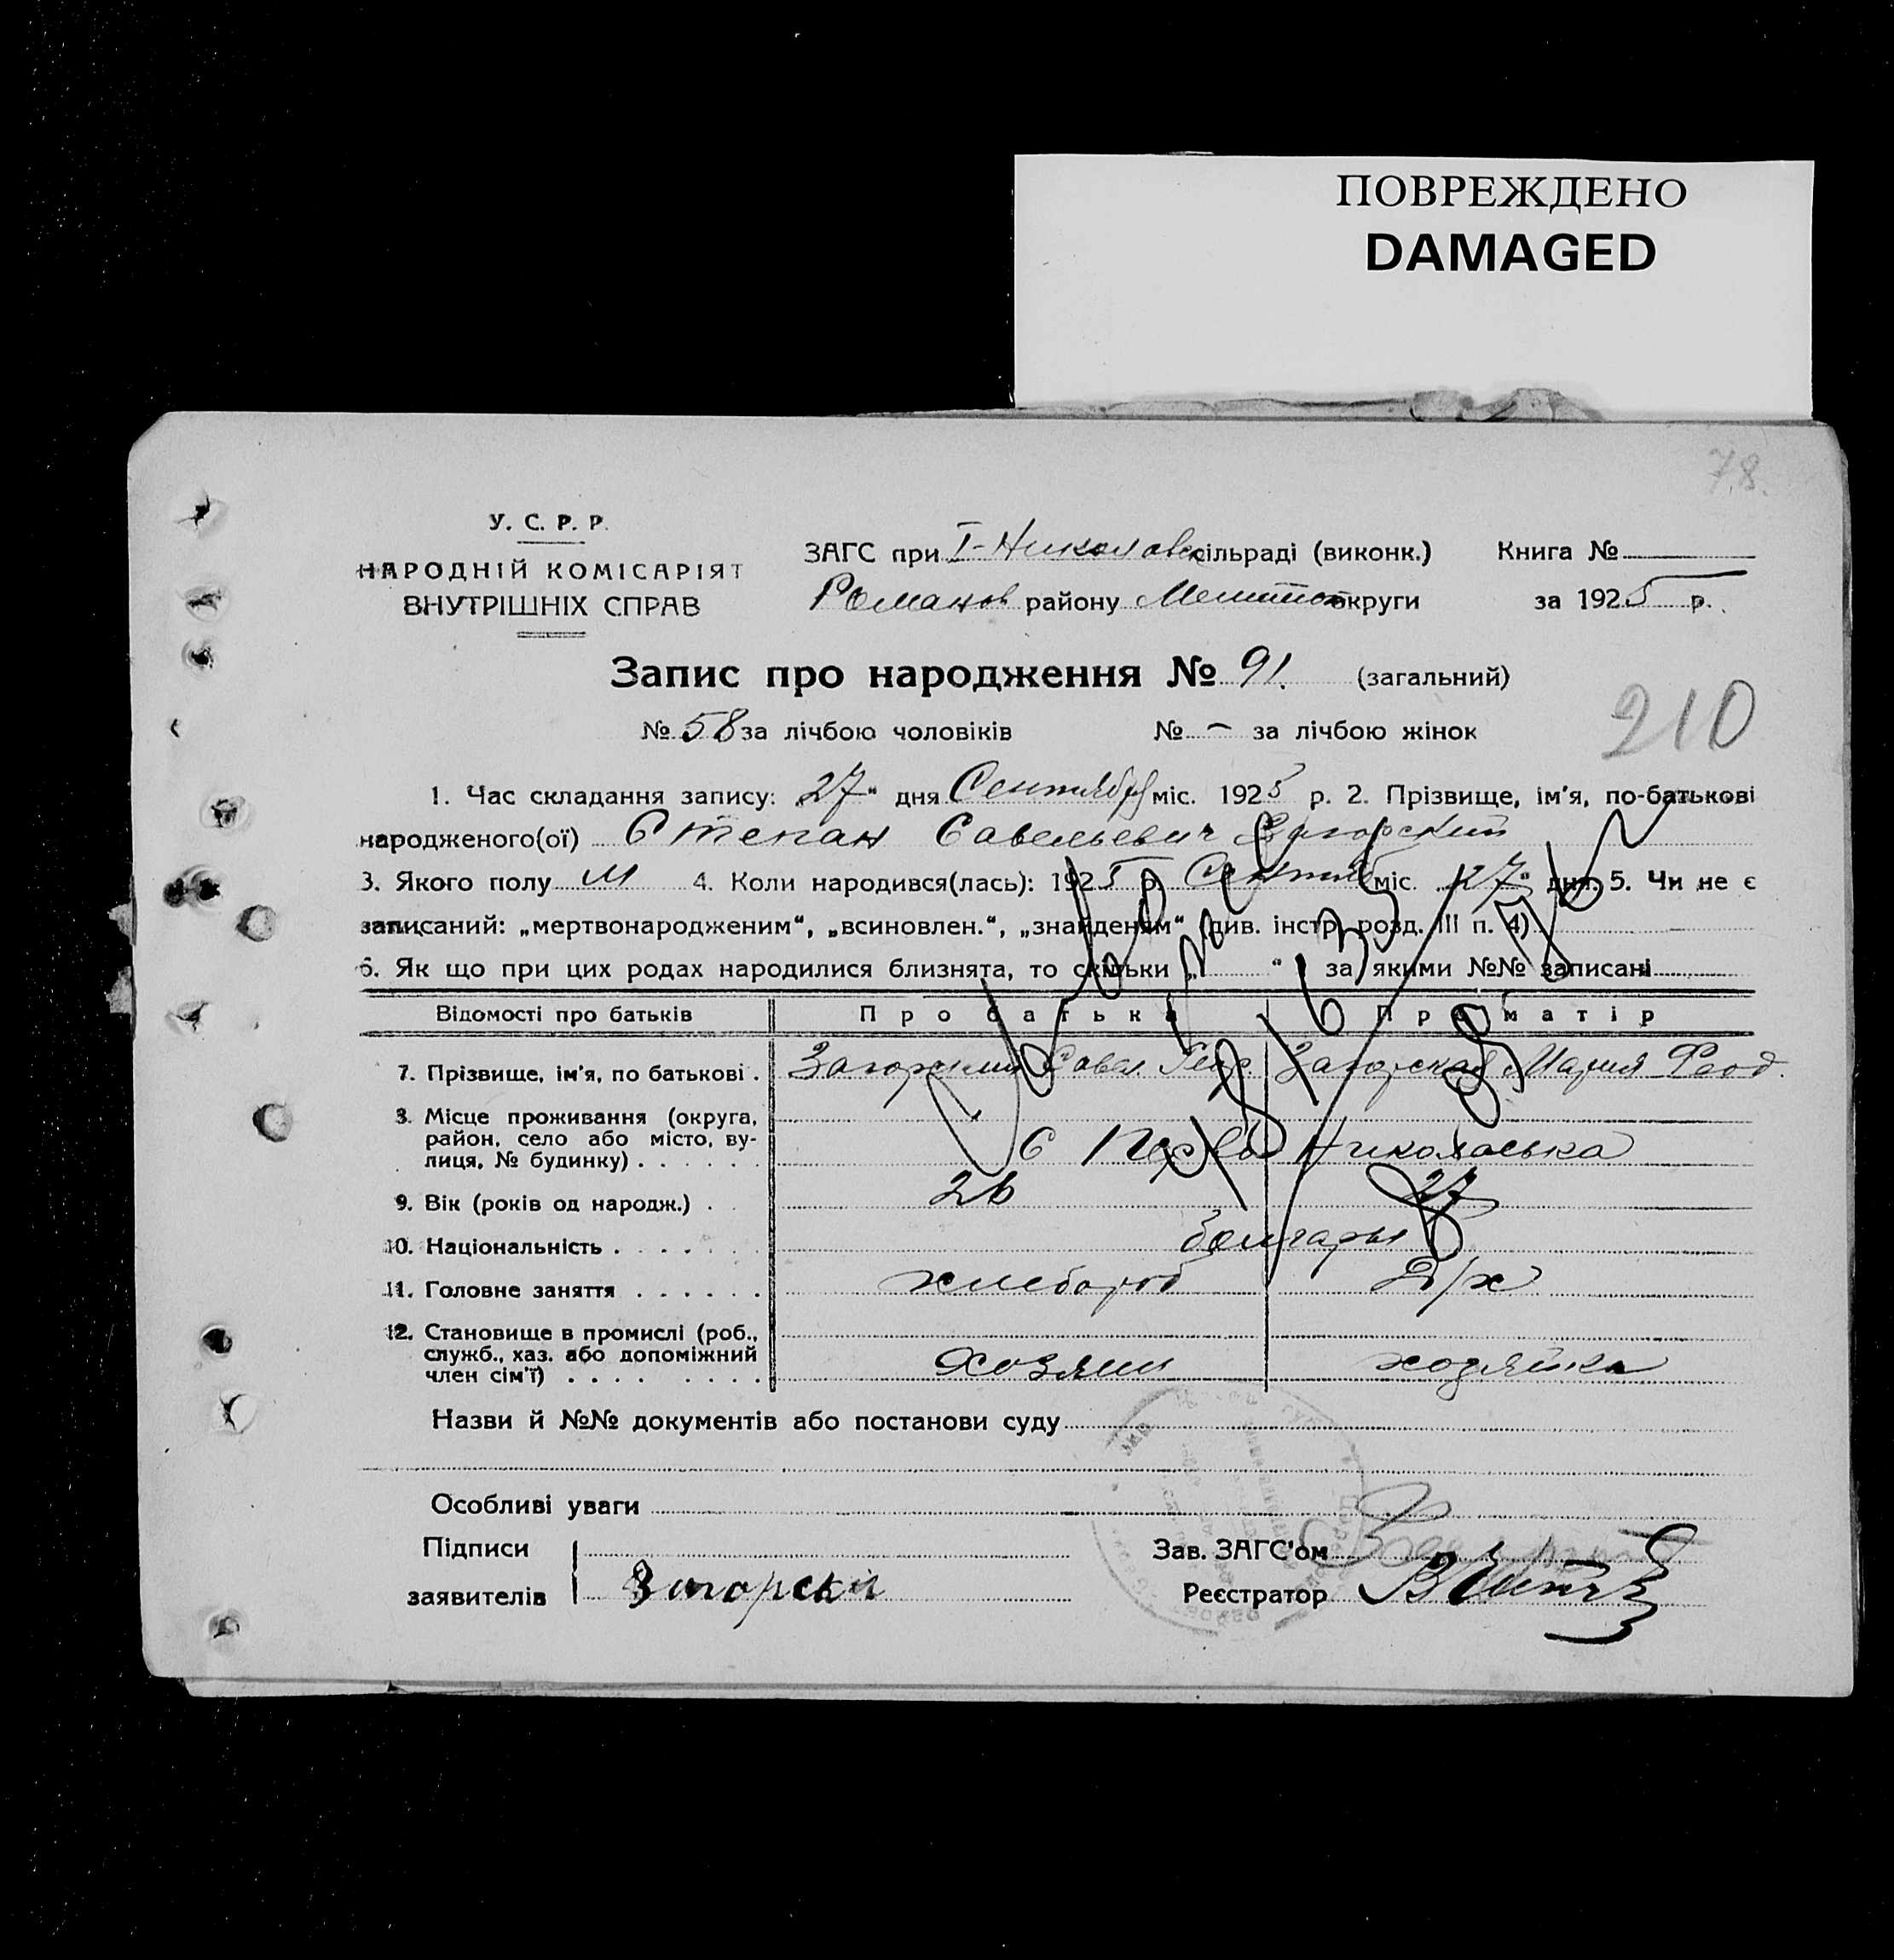 ПОВРЕЖДЕНО
DAMAGED
78.
У. С. Р. Р.
НАРОДНІЙ КОМІСАРІЯТ
ВНУТРІШНІХ СПРАВ
ЗАГС при І-Николаевс сільраді (виконк.) Книга №
Романов району Мелитоп округи за 1925 р.
Запис про народження № 91. (загальний)
№ 58 за лічбою чоловіків № – за лічбою жінок
210
1. Час складання запису: „27“ дня Сентября міс. 1925 р. 2. Прізвище, ім'я, по-батькові
народженого(ої) Степан Савельевич Загорский
3. Якого полу М 4. Коли народився(лась): 1925 р. Сентяб міс. „27“ дня. 5. Чи не є
записаний: „мертвонародженим“, „всиновлен.“, „знайденим“ (див. інстр. розд. III п. 4)
6. Як що при цих родах народилися близнята, то скільки „ “ і за якими №№ записані
Відомості про батьків Про батька Про матір
7. Прізвище, ім'я, по батькові . Загорский Савел. Загорская Мария Феод.
8. Місце проживання (округа,
район, село або місто, ву-
лиця, № будинку) . . . . . . С Перво Николаевка
9. Вік (років од народж.) . . 26 27
10. Національність . . . . . . . болгары
11. Головне заняття . . . . . . хлебороб Д/х
12. Становище в промислі (роб.,
служб., хаз. або допоміжний
член сім'ї) . . . . . . . . Хозяин хозяйка
Назви й №№ документів або постанови суду
Особливі уваги
Підписи Зав. ЗАГС'ом
заявителів Загорский Реєстратор